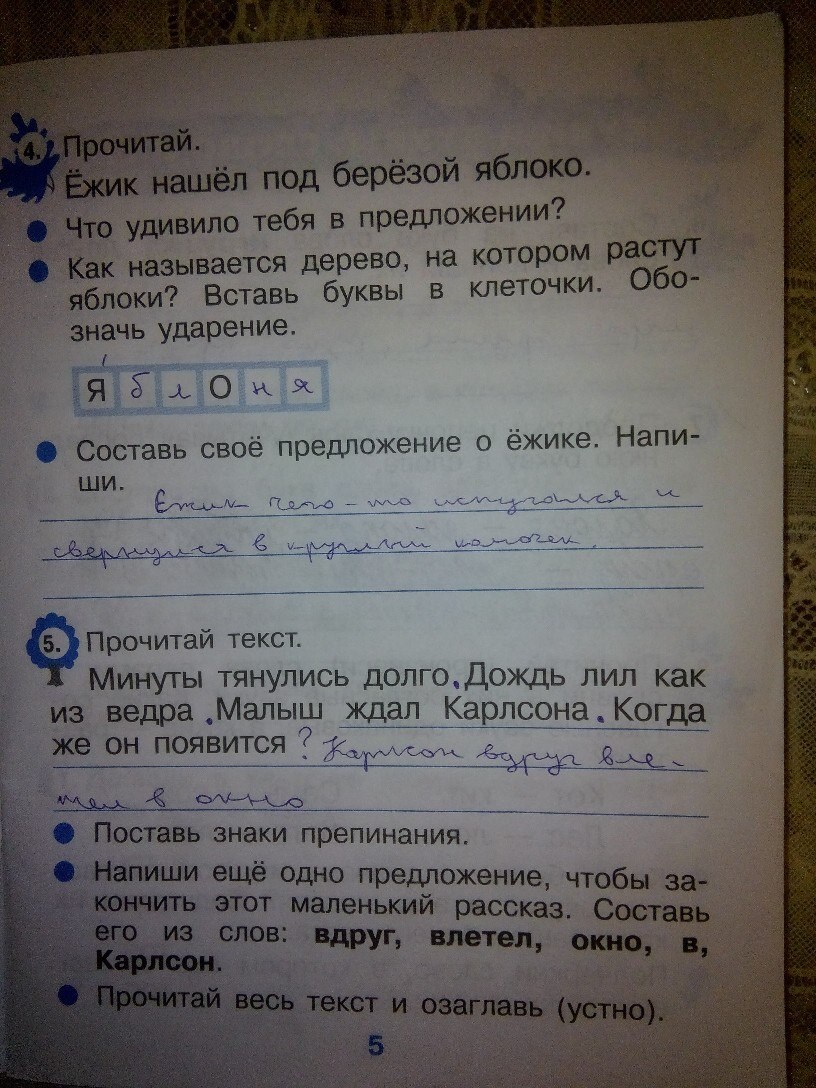 4. Прочитай.
Ёжик нашёл под берёзой яблоко.
Что удивило тебя в предложении?
Как называется дерево, на котором растут
яблоки? Вставь буквы в клеточки. Обо-
значь ударение.
Яблоня
Составь своё предложение о ёжике. Напи-
ши. Ёжик чего-то испугался и
свернулся в круглый комочек.
5. Прочитай текст.
Минуты тянулись долго. Дождь лил как
из ведра. Малыш ждал Карлсона. Когда
же он появится? Карлсон вдруг вле-
тел в окно
Поставь знаки препинания.
Напиши ещё одно предложение, чтобы за-
кончить этот маленький рассказ. Составь
его из слов: вдруг, влетел, окно, в,
Карлсон.
Прочитай весь текст и озаглавь (устно).
5